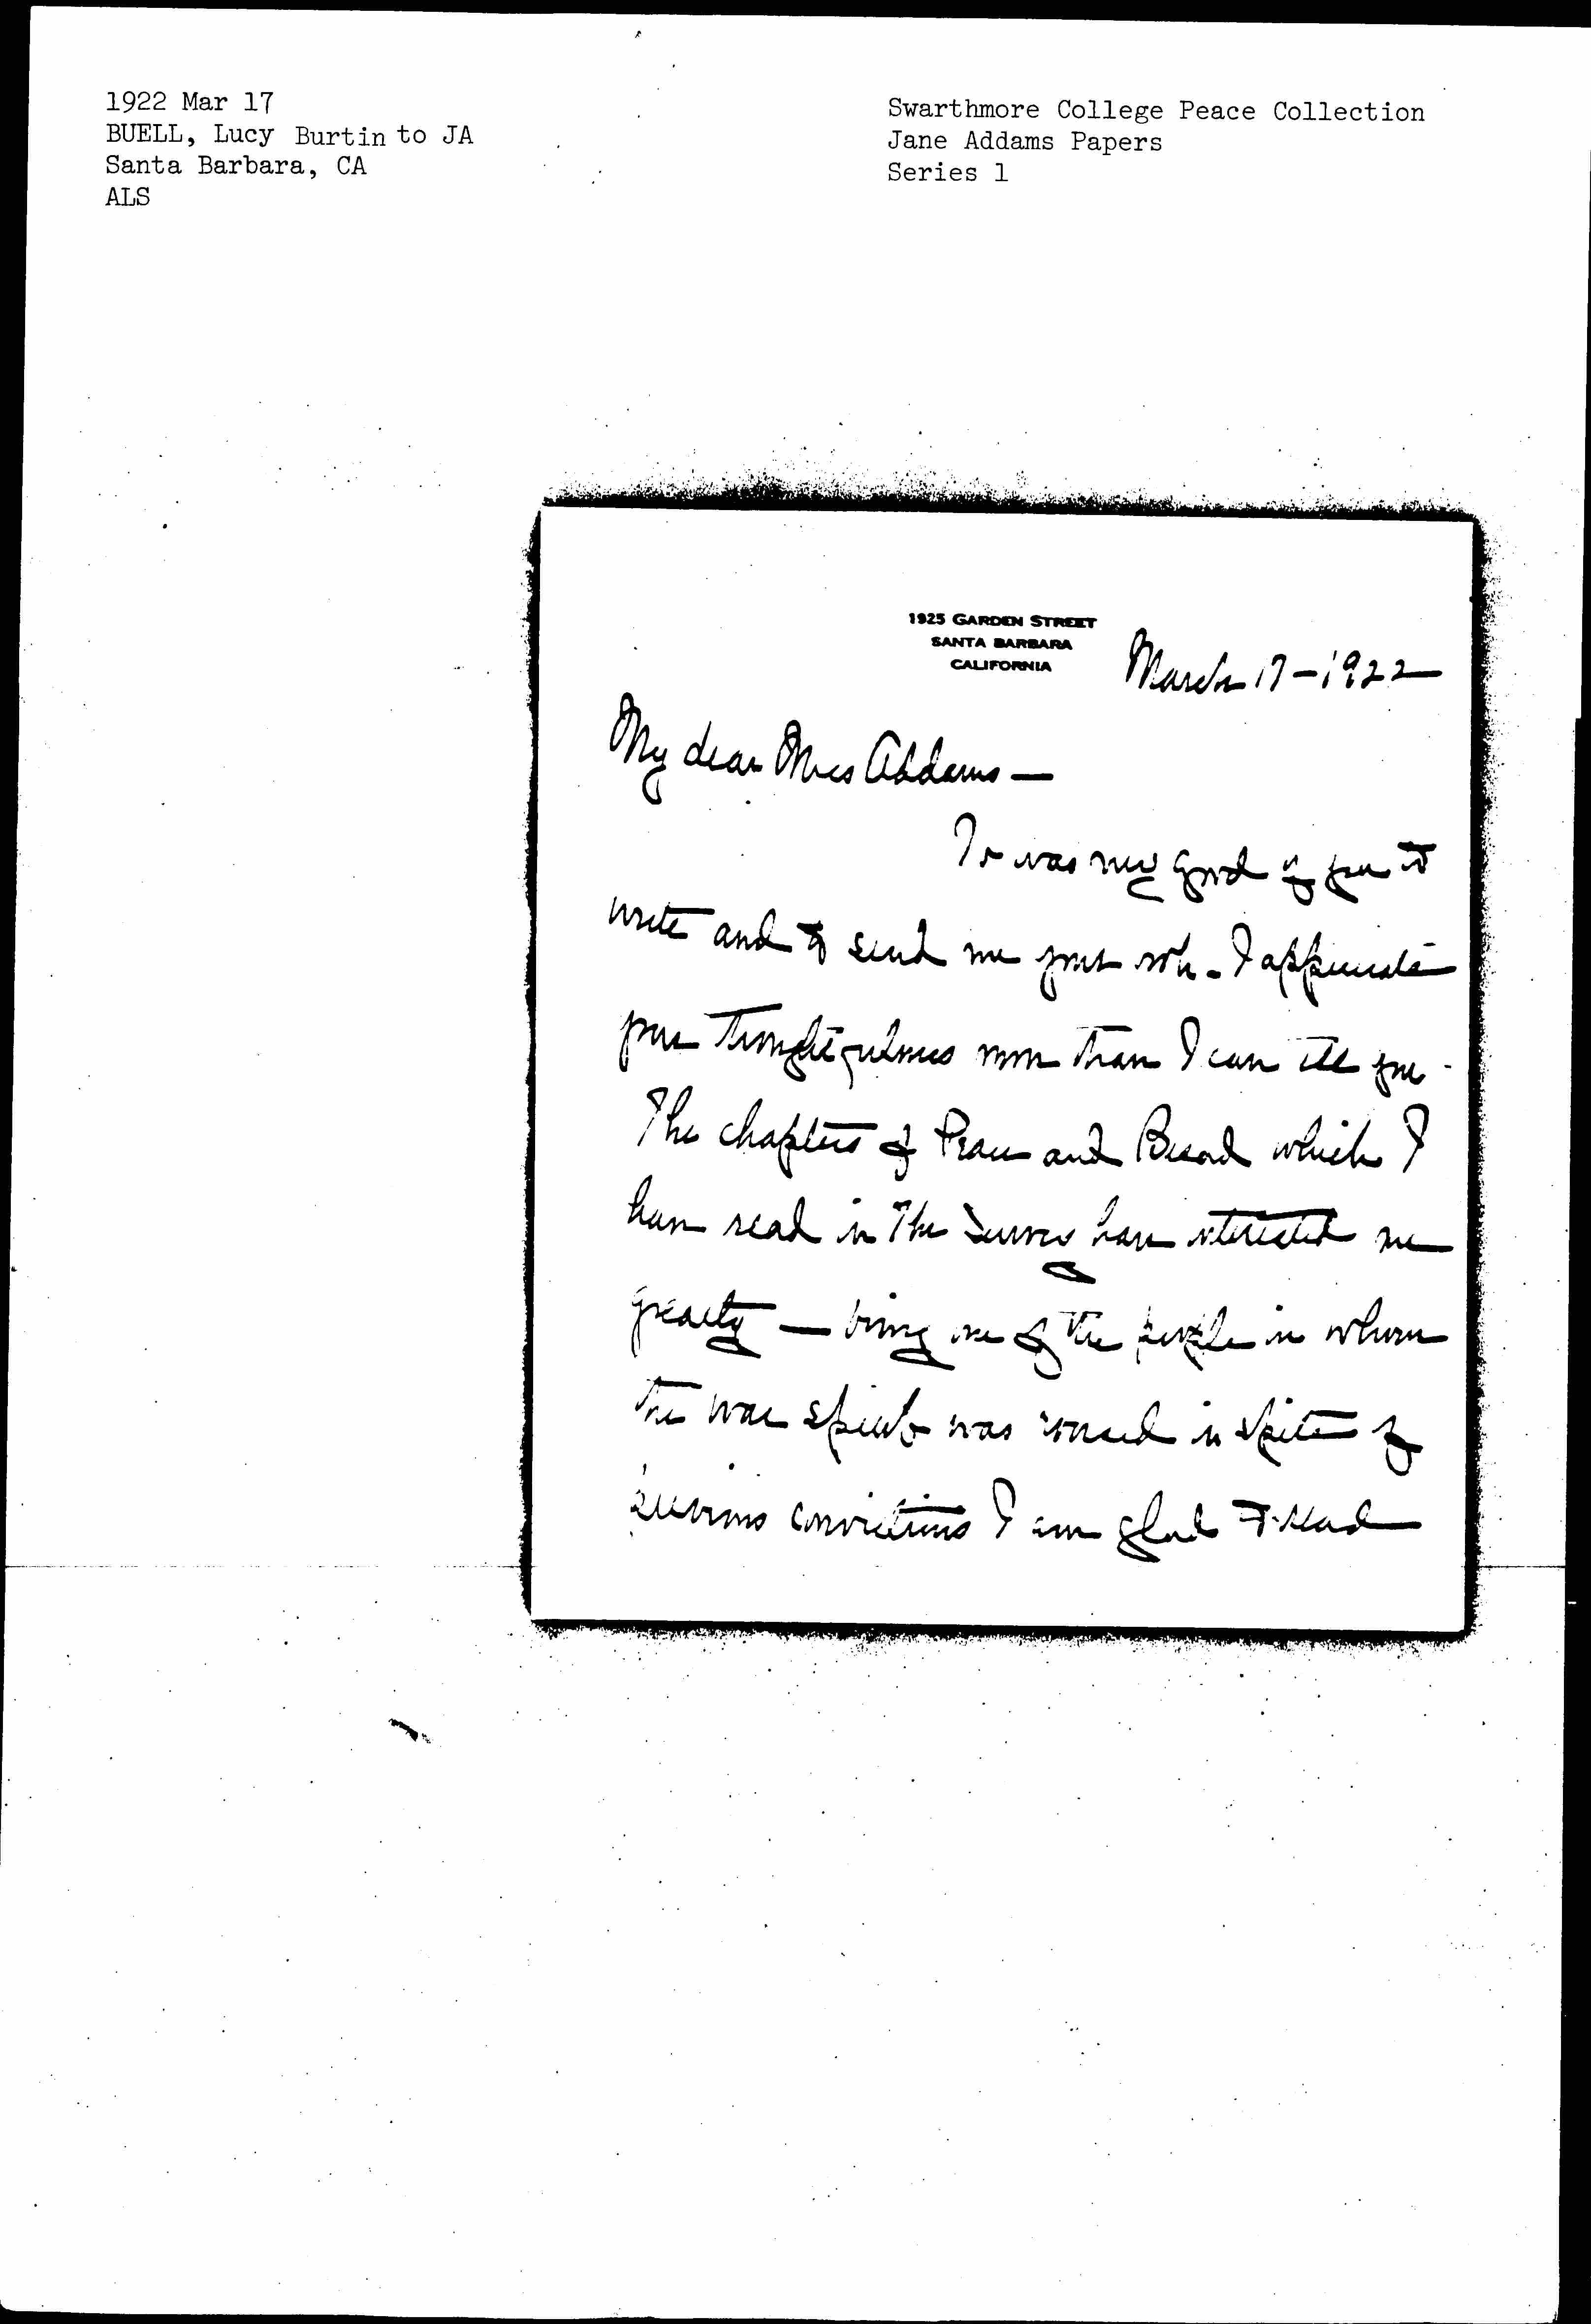 1922 Mar 17
BUELL, Lucy Burtin to JA
Santa Barbara, CA
ALS
Swarthmore College Peace Collection
Jane Addams Papers
Series 1
1925 GARDEN STREET
SANTA BARBARA
CALIFORNIA
March 17 - 1922
My dear Miss Addams —
It was very good of you to
write and to send me your note - I appreciate
your thoughtfulness more than I can tell you.
The chapters of Peace and Bread which I
have read in The Survey have interested me
greatly — being one of the people in whom
the war spirit was roused in spite of
previous convictions I am glad to read